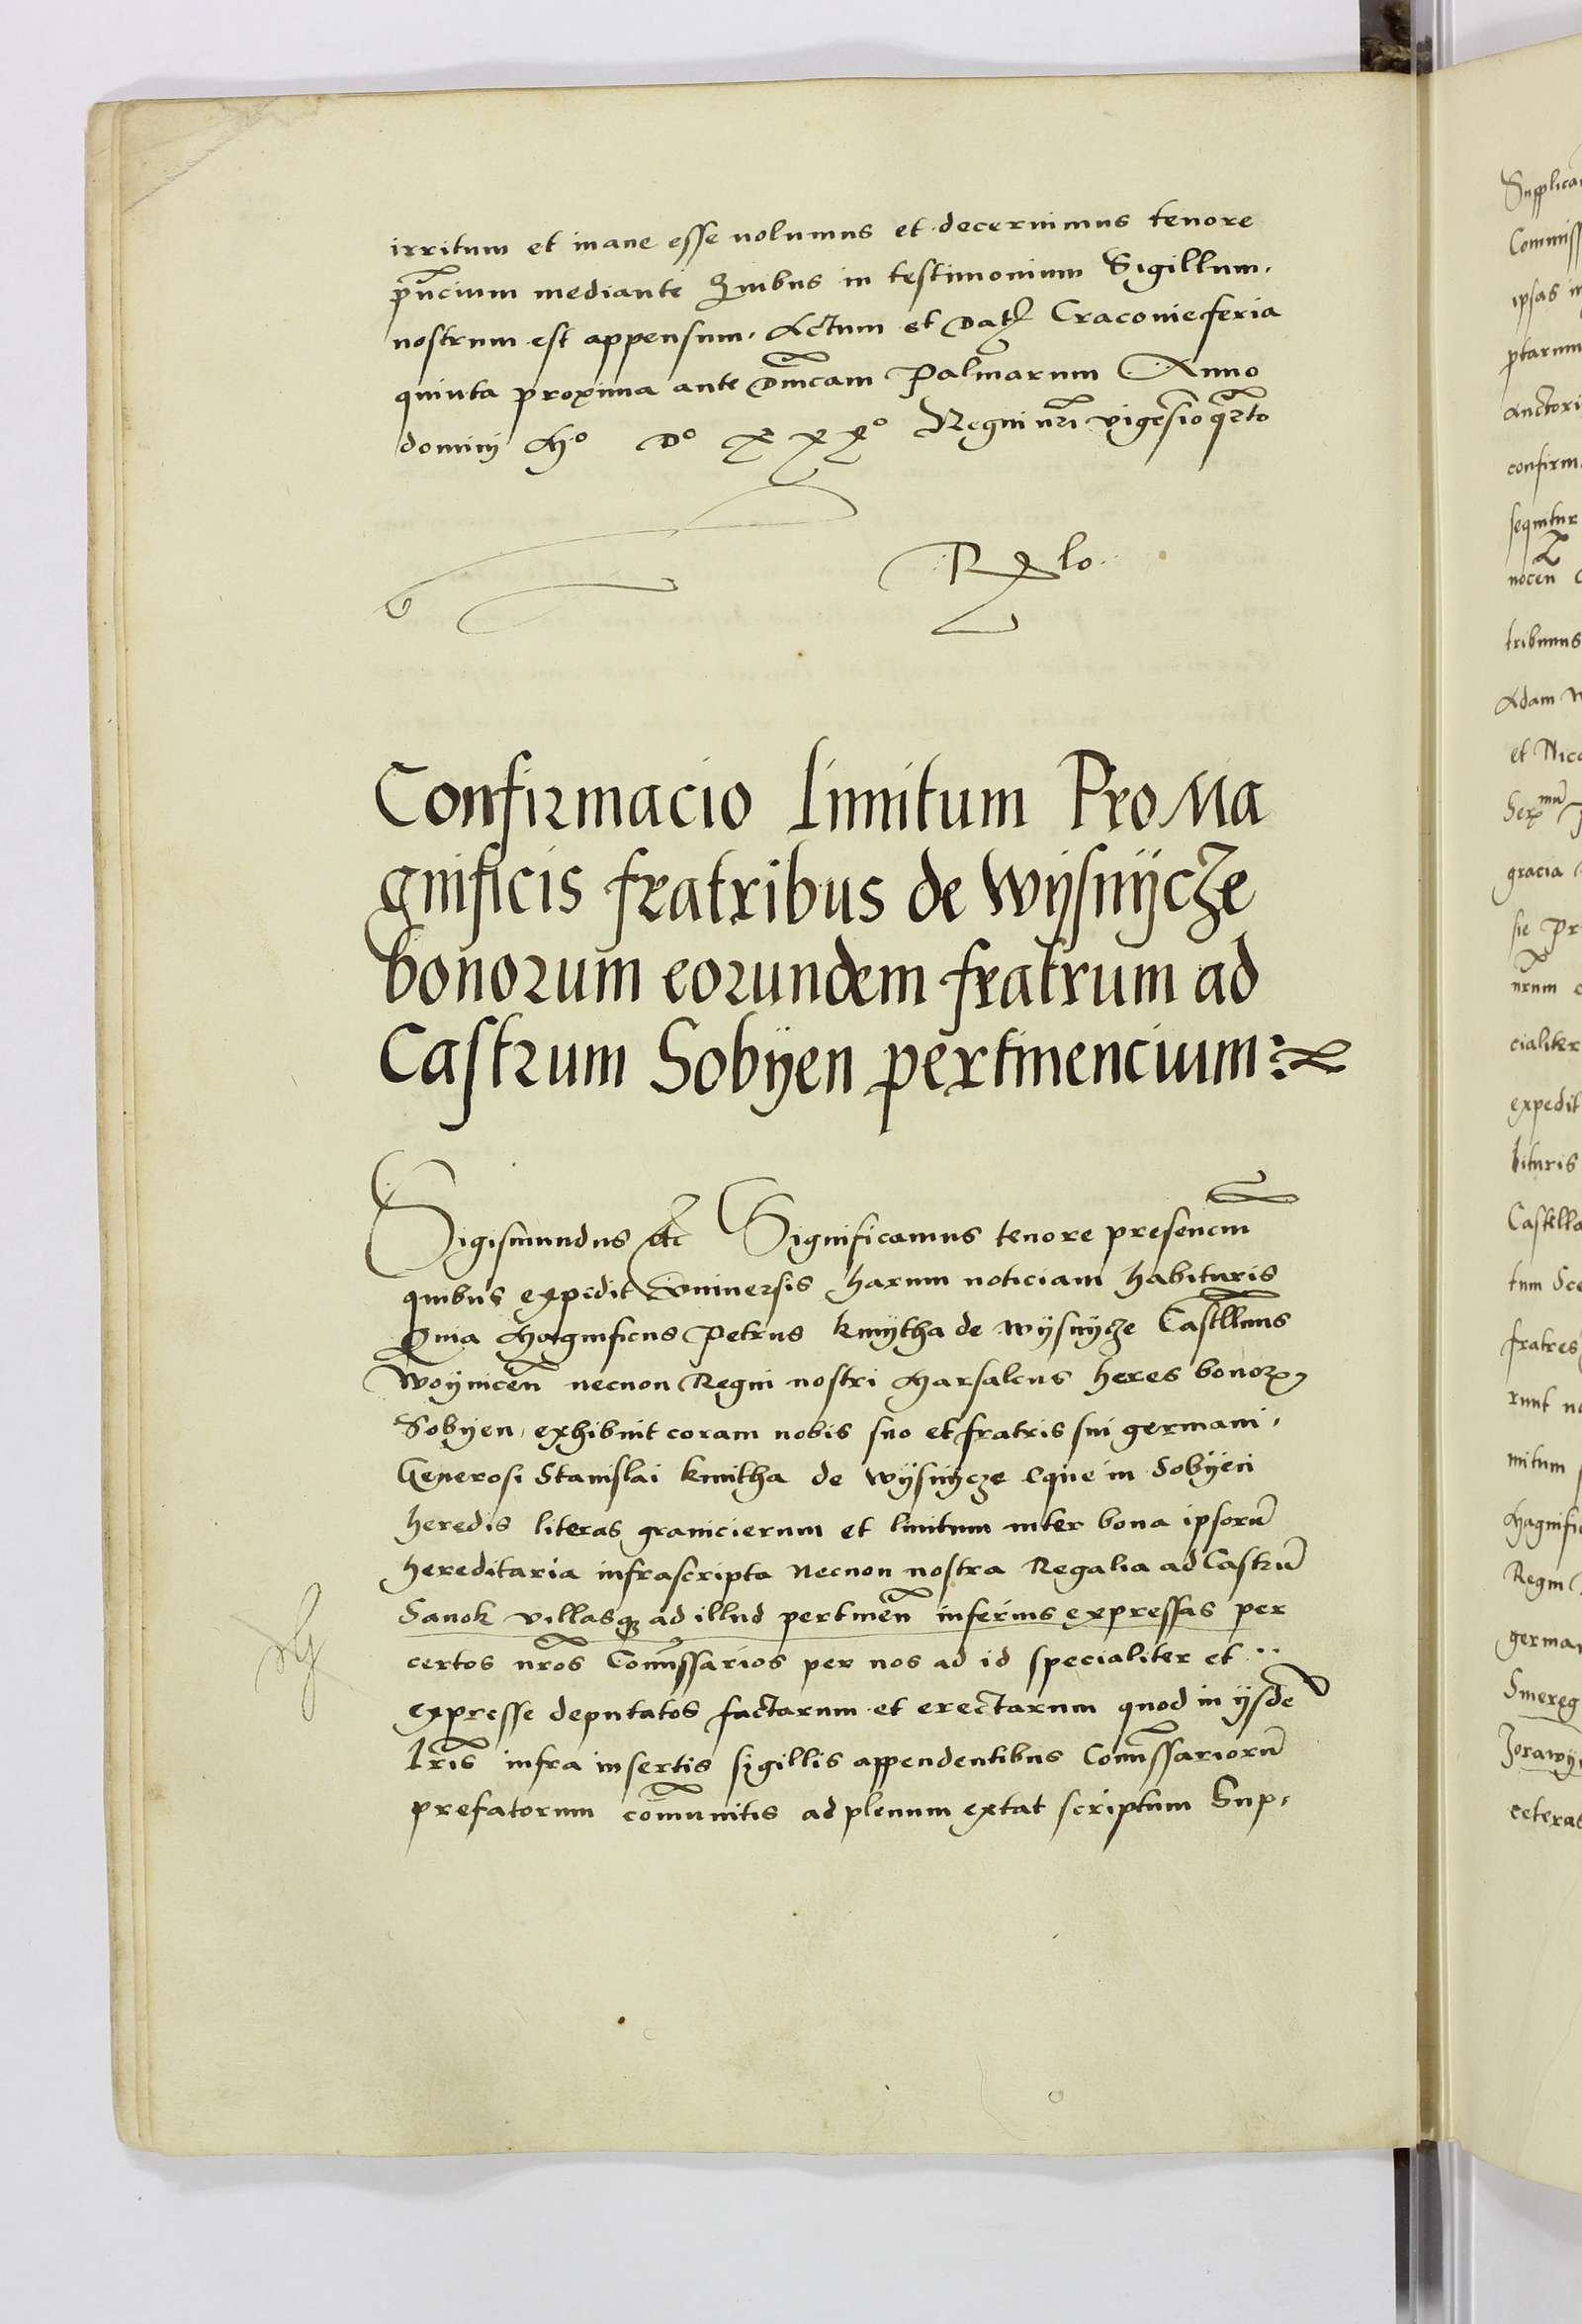 irritum et inane esse volumus et decernimus tenore
pñcium mediante Quibus in testimonium Sigillum.
nostrum est appensum. Actum et Dat Cracovie feria
quinta proxima ante Dnicam Palmarum Anno
domini Mº Dº xxxº Regni nri vigesio qrto
Confirmacio limitum Pro Ma
gnificis fratribus de Wÿsnÿcze
bonorum eorundem fratrum ad
Castrum Sobÿen pertinencium:
Sigismundus etc Significamus tenore presencm̃
quibus expedit Vniversis harum noticiam habituris
Quia Magnificus Petrus kmÿtha de wÿsnÿcze Castllnus
Woÿnicen̄ necnon Regni nostri Marsalcus heres bonor
Sobÿen, exhibuit coram nobis suo et fratris sui germani,
Generosi Stanislai kmitha de wÿsnÿcze eque in Sobÿen
heredis literas granicierum et limitum inter bona ipsorū
hereditaria infrascripta Necnon nostra Regalia ad Castrū
Sanok villasq̧ ad illud pertinen̄ inferius expressas per
certos nr̄os Comissarios per nos ad id specialiter et ..
expresse deputatos factarum et erectarum quod in ÿsdē
lris infra insertis sigillis appendentibus Comissariorū
prefatorum com̄unitis ad plenum extat scriptum Sup,
Supplica
Commiss
ipsas in
ptarum
auctori
confirm
sequitur
nocen̄
tribunus
Adam
et Nico
Ser
gracia
sie Pr
nrum
cialiter
expedit
bituris
Castella
tum Sce
fratres
runt no
mitum
Magnifi
Regni
german
Smereg
ceteras